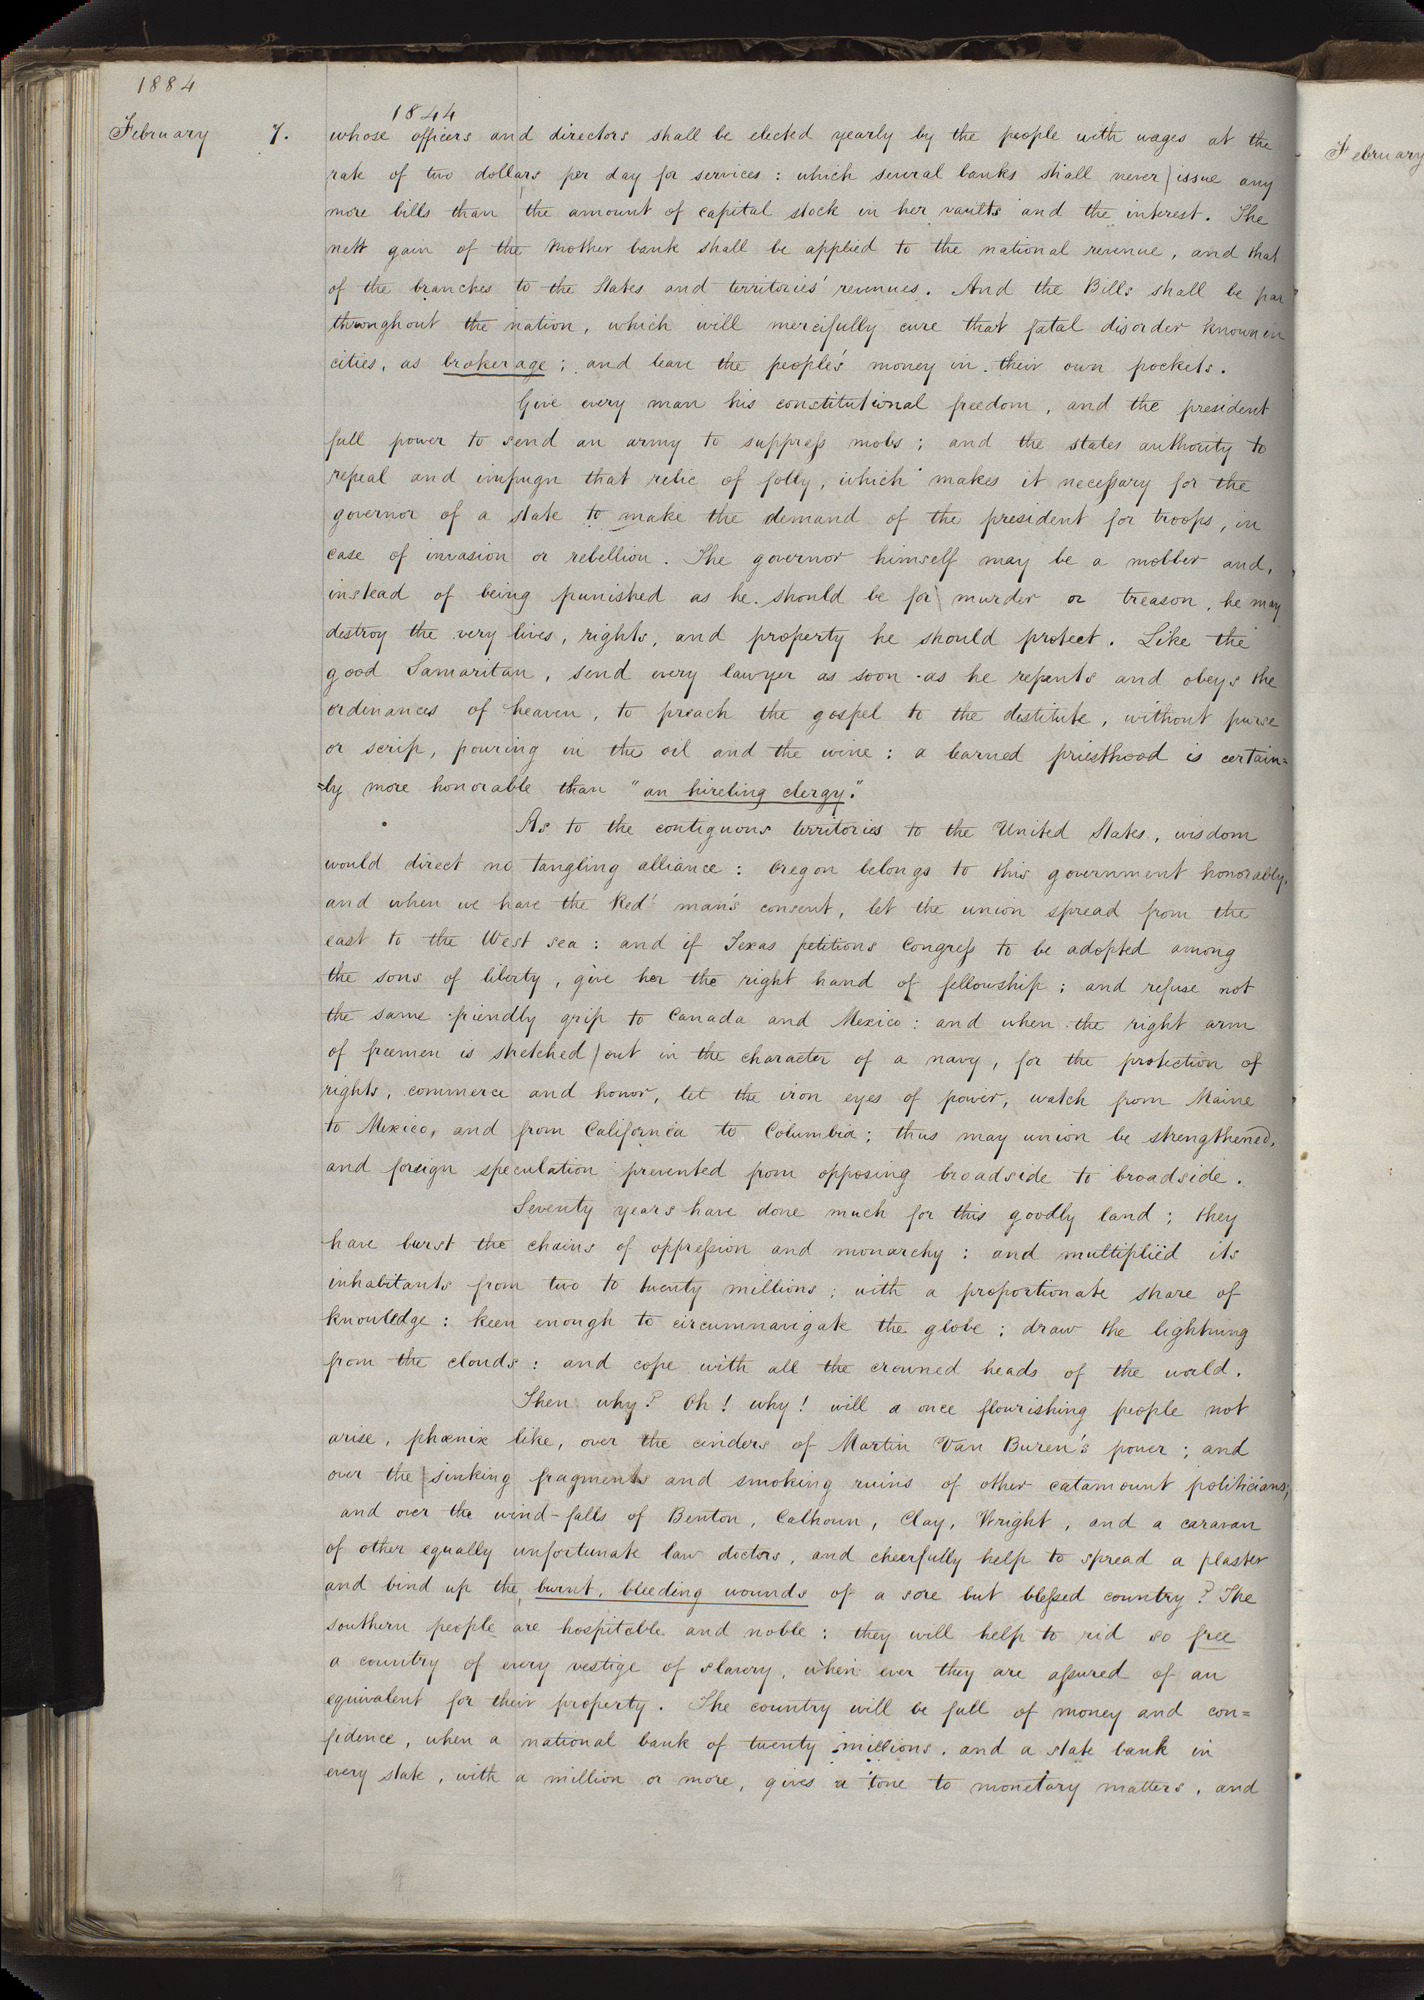 1884
1844
February 7. whose officers and directors shall be elected yearly by the people with wages at the
rate of two dollars per day for services: which several banks shall never issue any
more bills than the amount of capital stock in her vaults and the interest. The
nett gain of the Mother bank shall be applied to the national revenue, and that
of the branches to the States and territories' revenues. And the Bills shall be par
throughout the nation, which will mercifully cure that fatal disorder known in
cities, as brokerage; and leave the people's money in their own pockets.
Give every man his constitutional freedom, and the president
full power to send an army to suppress mobs; and the states authority to
repeal and impugn that relic of folly, which makes it necessary for the
governor of a state to make the demand of the president for troops, in
case of invasion or rebellion. The governor himself may be a mobber and,
instead of being punished as he should be for murder or treason, he may
destroy the very lives, rights, and property he should protect. Like the
good Samaritan, send every lawyer as soon as he repents and obeys the
ordinances of heaven, to preach the gospel to the destitute, without purse
or scrip, pouring in the oil and the wine: a learned priesthood is certain=
=ly more honorable than "an hireling clergy."
As to the contiguous territories to the United States, wisdom
would direct no tangling alliance: Oregon belongs to this government honorably,
and when we have the Red man's consent, let the union spread from the
east to the West sea: and if Texas petitions Congress to be adopted among
the sons of liberty, give her the right hand of fellowship; and refuse not
the same friendly grip to Canada and Mexico: and when the right arm
of freemen is stretched out in the character of a navy, for the protection of
rights, commerce and honor, let the iron eyes of power, watch from Maine
to Mexico, and from California to Columbia; thus may union be strengthened,
and foreign speculation prevented from opposing broadside to broadside.
Seventy years have done much for this goodly land; they
have burst the chains of oppression and monarchy: and multiplied its
inhabitants from two to twenty millions; with a proportionate share of
knowledge: keen enough to circumnavigate the globe; draw the lightning
from the clouds: and cope with all the crowned heads of the world.
Then why? Oh! why! will a once flourishing people not
arise, phœnix like, over the cinders of Martin Van Buren's power; and
over the sinking fragments and smoking ruins of other catamount politicians;
and over the wind-falls of Benton, Calhoun, Clay, Wright, and a caravan
of other equally unfortunate law doctors, and cheerfully help to spread a plaster
and bind up the burnt, bleeding wounds of a sore but blessed country? The
southern people are hospitable and noble: they will help to rid so free
a country of every vestige of slavery, when ever they are assured of an
equivalent for their property. The country will be full of money and con=
fidence, when a national bank of twenty millions, and a state bank in
every state, with a million or more, gives a tone to monetary matters, and
February